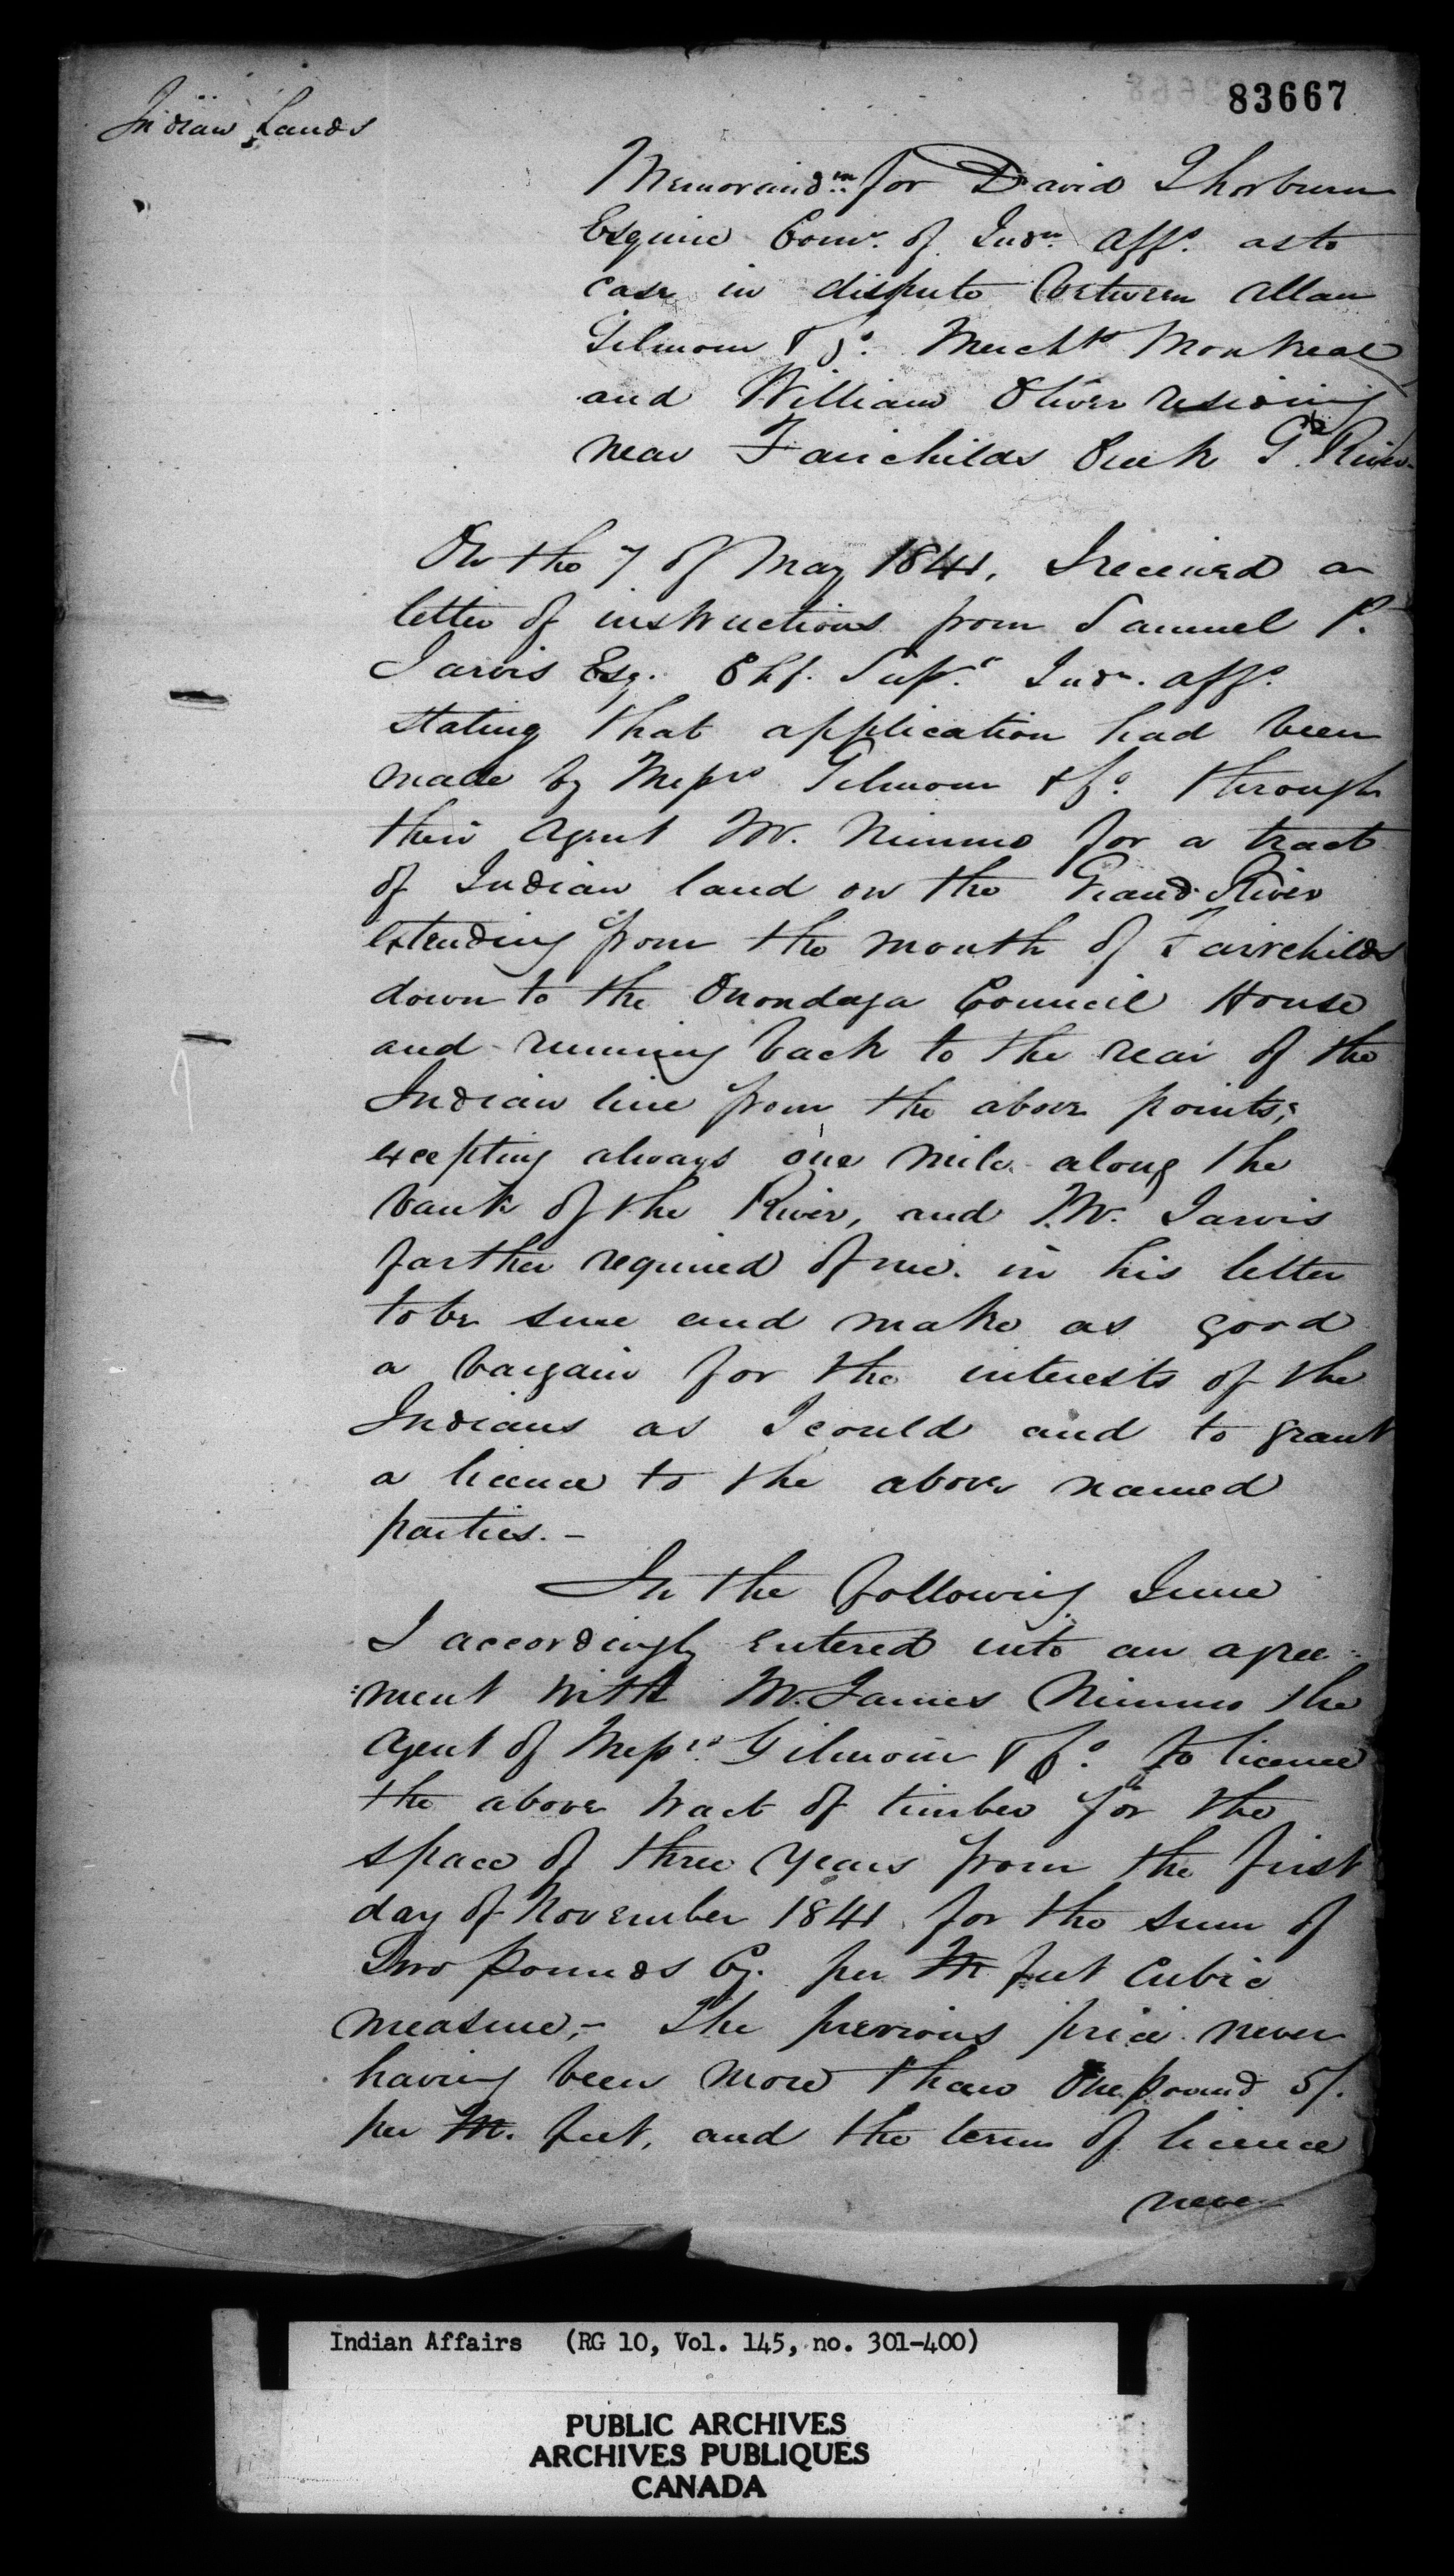 83667
Indian Lands
Memorandm. for David Thorburn
Esquire Comr. of Indn. Affs. as to
case in dispute between Allan
Gilmour & Co. Merchts Montreal
and William Oliver residing
near Fairchilds Creek Gd. River
On the 7 of May 1841, I received a
letter of instructions from Samuel P.
Jarvis Esq. Chf. Supt. Indn. Affs.
stating that application had been
made by Messrs Gilmour & Co. through
their Agent Mr. Nimmo for a tract
of Indian land on the Grand River
extending from the mouth of Fairchilds
down to the Onondaga Council House
and running back to the rear of the
Indian line from the above points;
excepting always one mile along the
bank of the River, and Mr. Jarvis
farther required of me. in his letter
to be sure and make as good
a bargain for the interests of the
Indians as I could and to grant
a licence to the above named
parties.-
In the following June
I accordingly entered into an agree-
:ment with Mr. James Nimmo the
Agent of Messrs. Gilmour & Co. to licence
the above tract of timber for the
space of three years from the first
day of November 1841 for the sum of
Two pounds Cy. per M feet Cubic
measure,- The previous price never
having been more than One pound 5/.
per M. feet, and the term of licence
never
Indian Affairs (RG 10, Vol. 145, no. 301-400)
PUBLIC ARCHIVES
ARCHIVES PUBLIQUES
CANADA